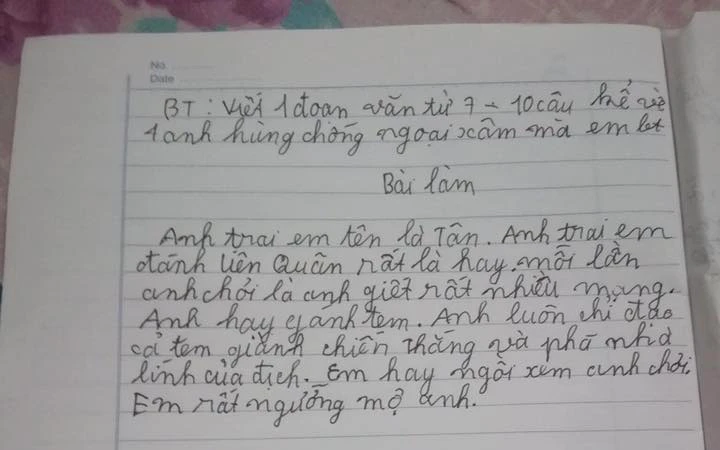 No.
Date
BT: Viết 1 đoạn văn từ 7 - 10 câu kể về
1 anh hùng chống ngoại xâm mà em biết
Bài làm
Anh trai em tên là Tân. Anh trai em
đánh liên Quân rất là hay. mỗi lần
anh chơi là anh giết rất nhiều mạng.
Anh hay gánh tem. Anh luôn chỉ đạo
cả tem giành chiến thắng và phá nhà
lính của địch. Em hay ngồi xem anh chơi.
Em rất ngưỡng mộ anh.